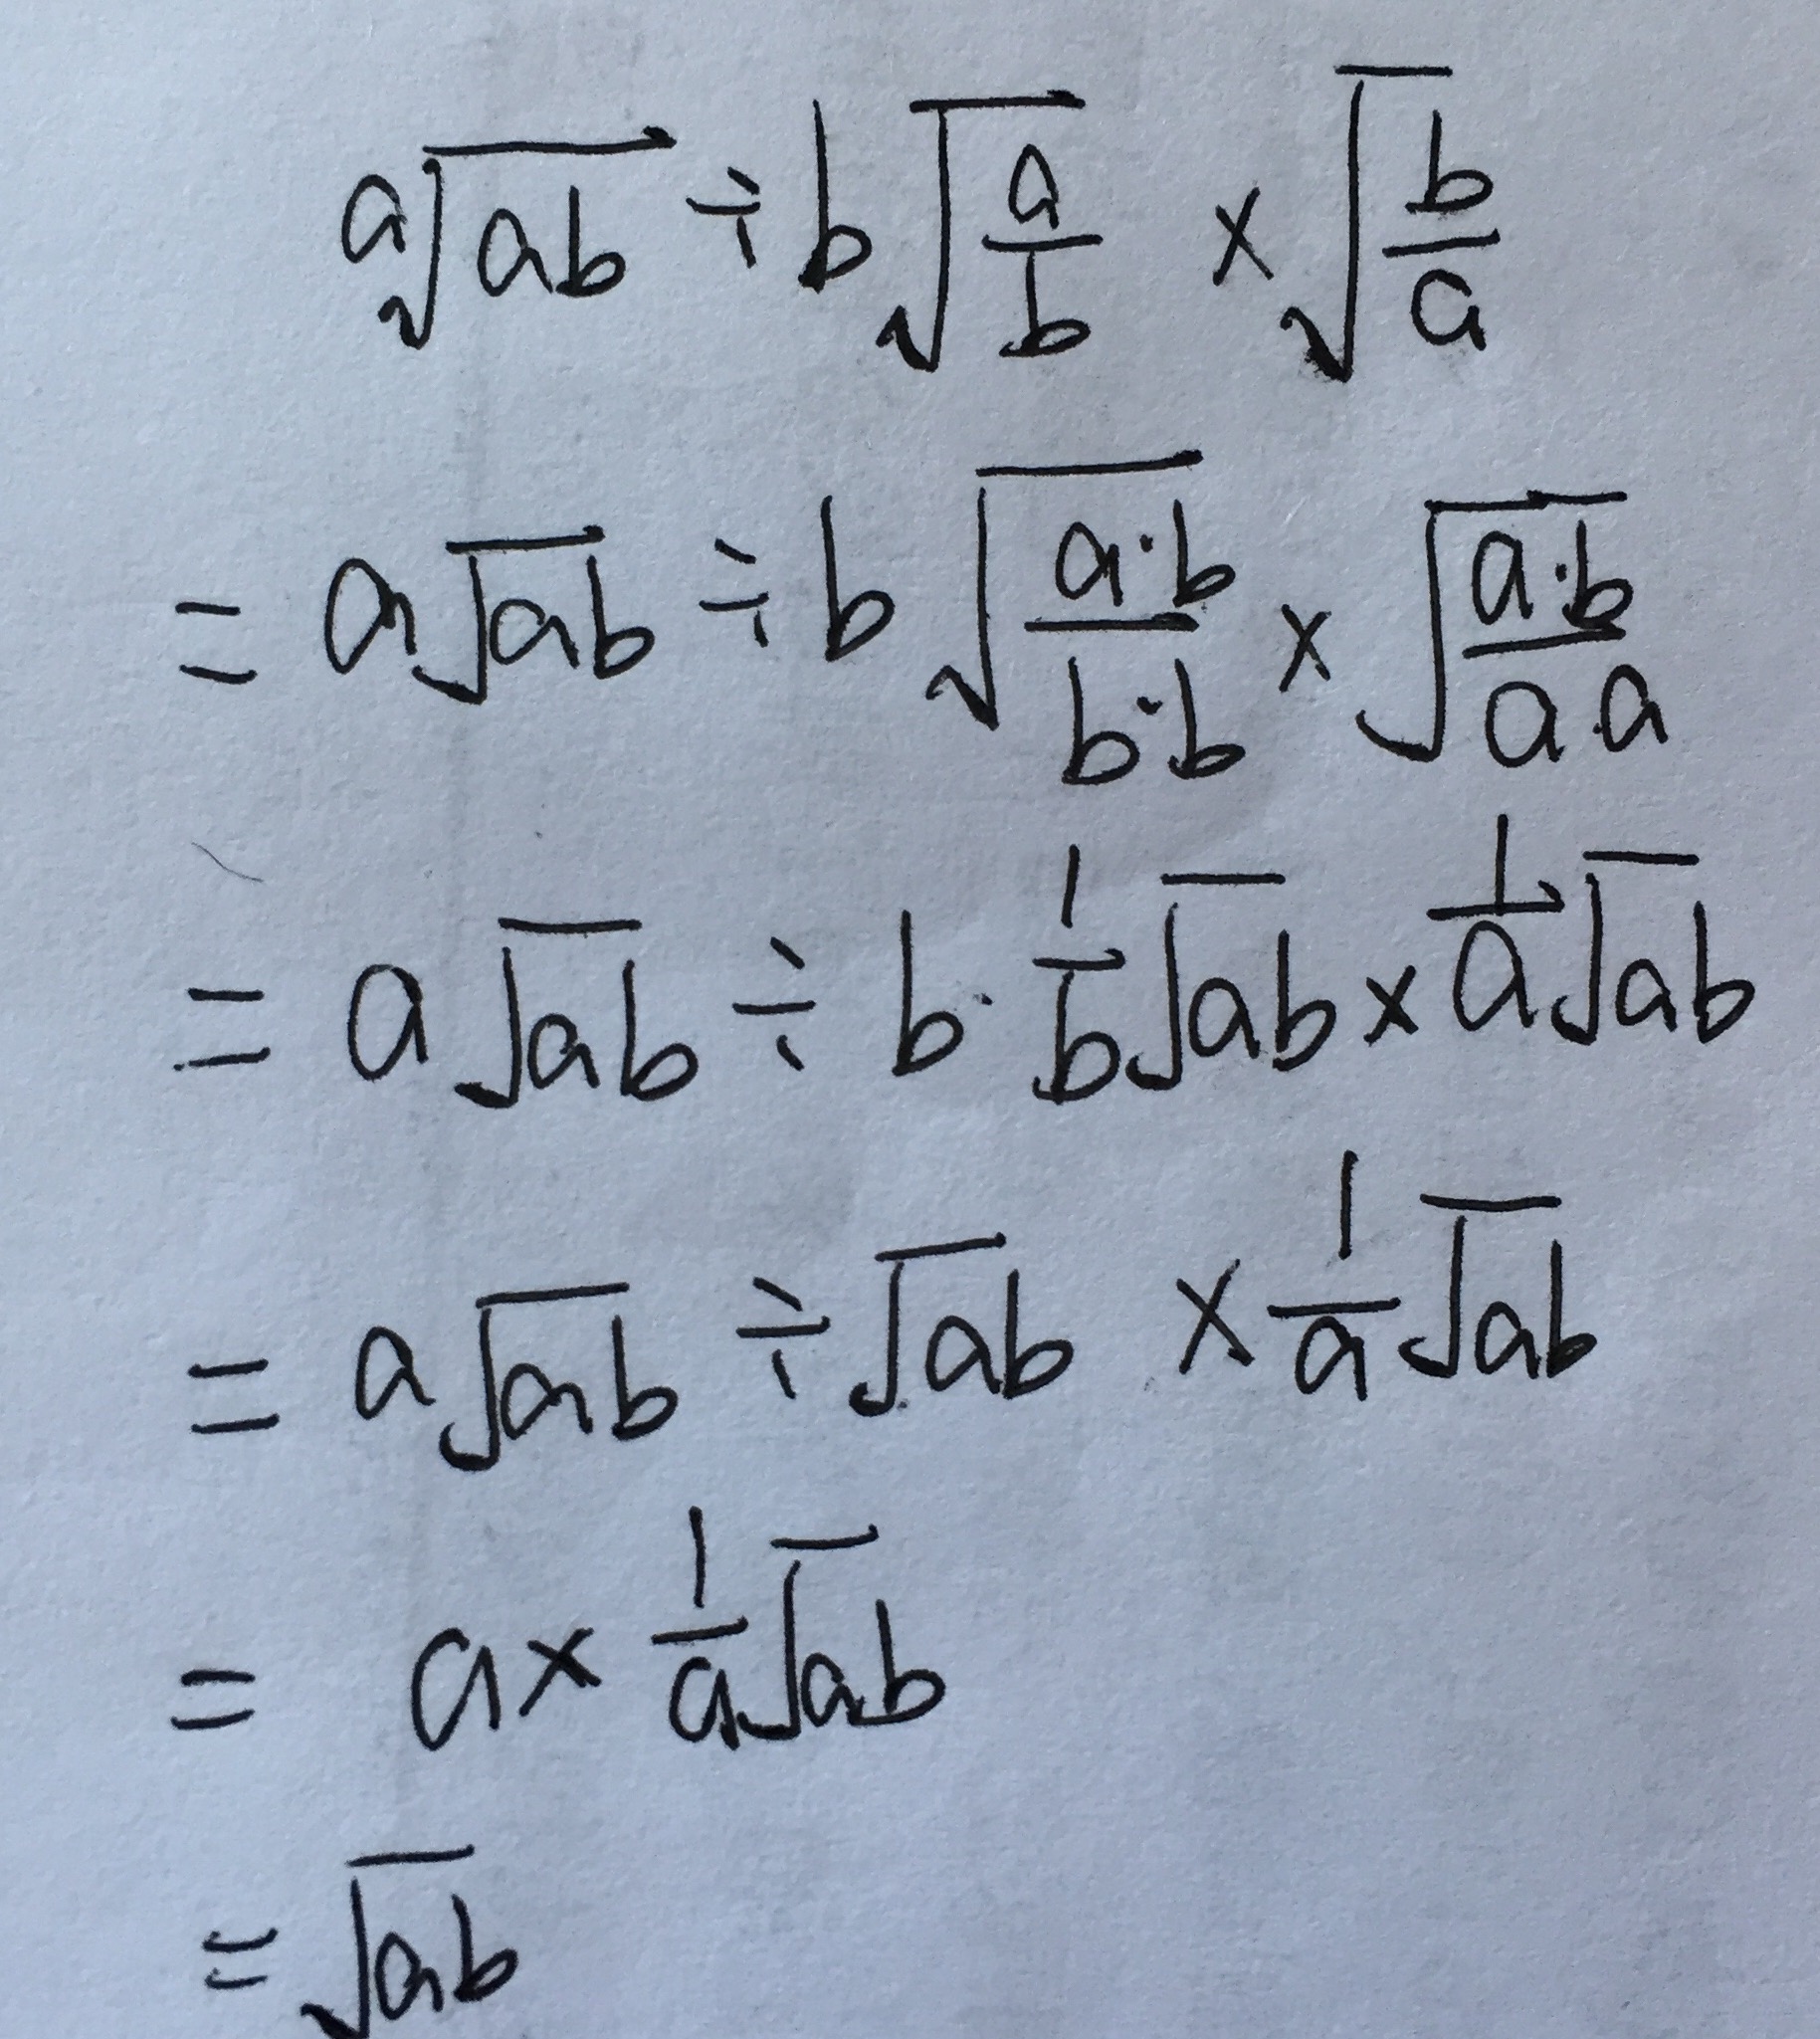 a√ab ÷ b√(a/b) × √(b/a)
= a√ab ÷ b√(a·b/b·b) × √(a·b/a·a)
= a√ab ÷ b·(1/b)√ab × (1/a)√ab
= a√ab ÷ √ab × (1/a)√ab
= a × (1/a)√ab
= √ab